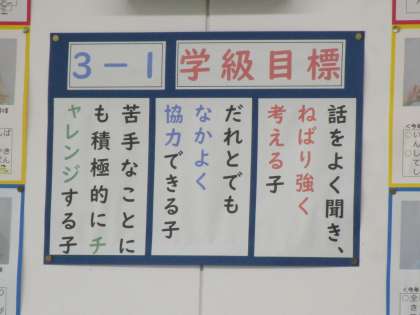 3－1 学級目標
話をよく聞き、
ねばり強く
考える子
だれとでも
なかよく
協力できる子
苦手なことに
も積極的にチ
ャレンジする子